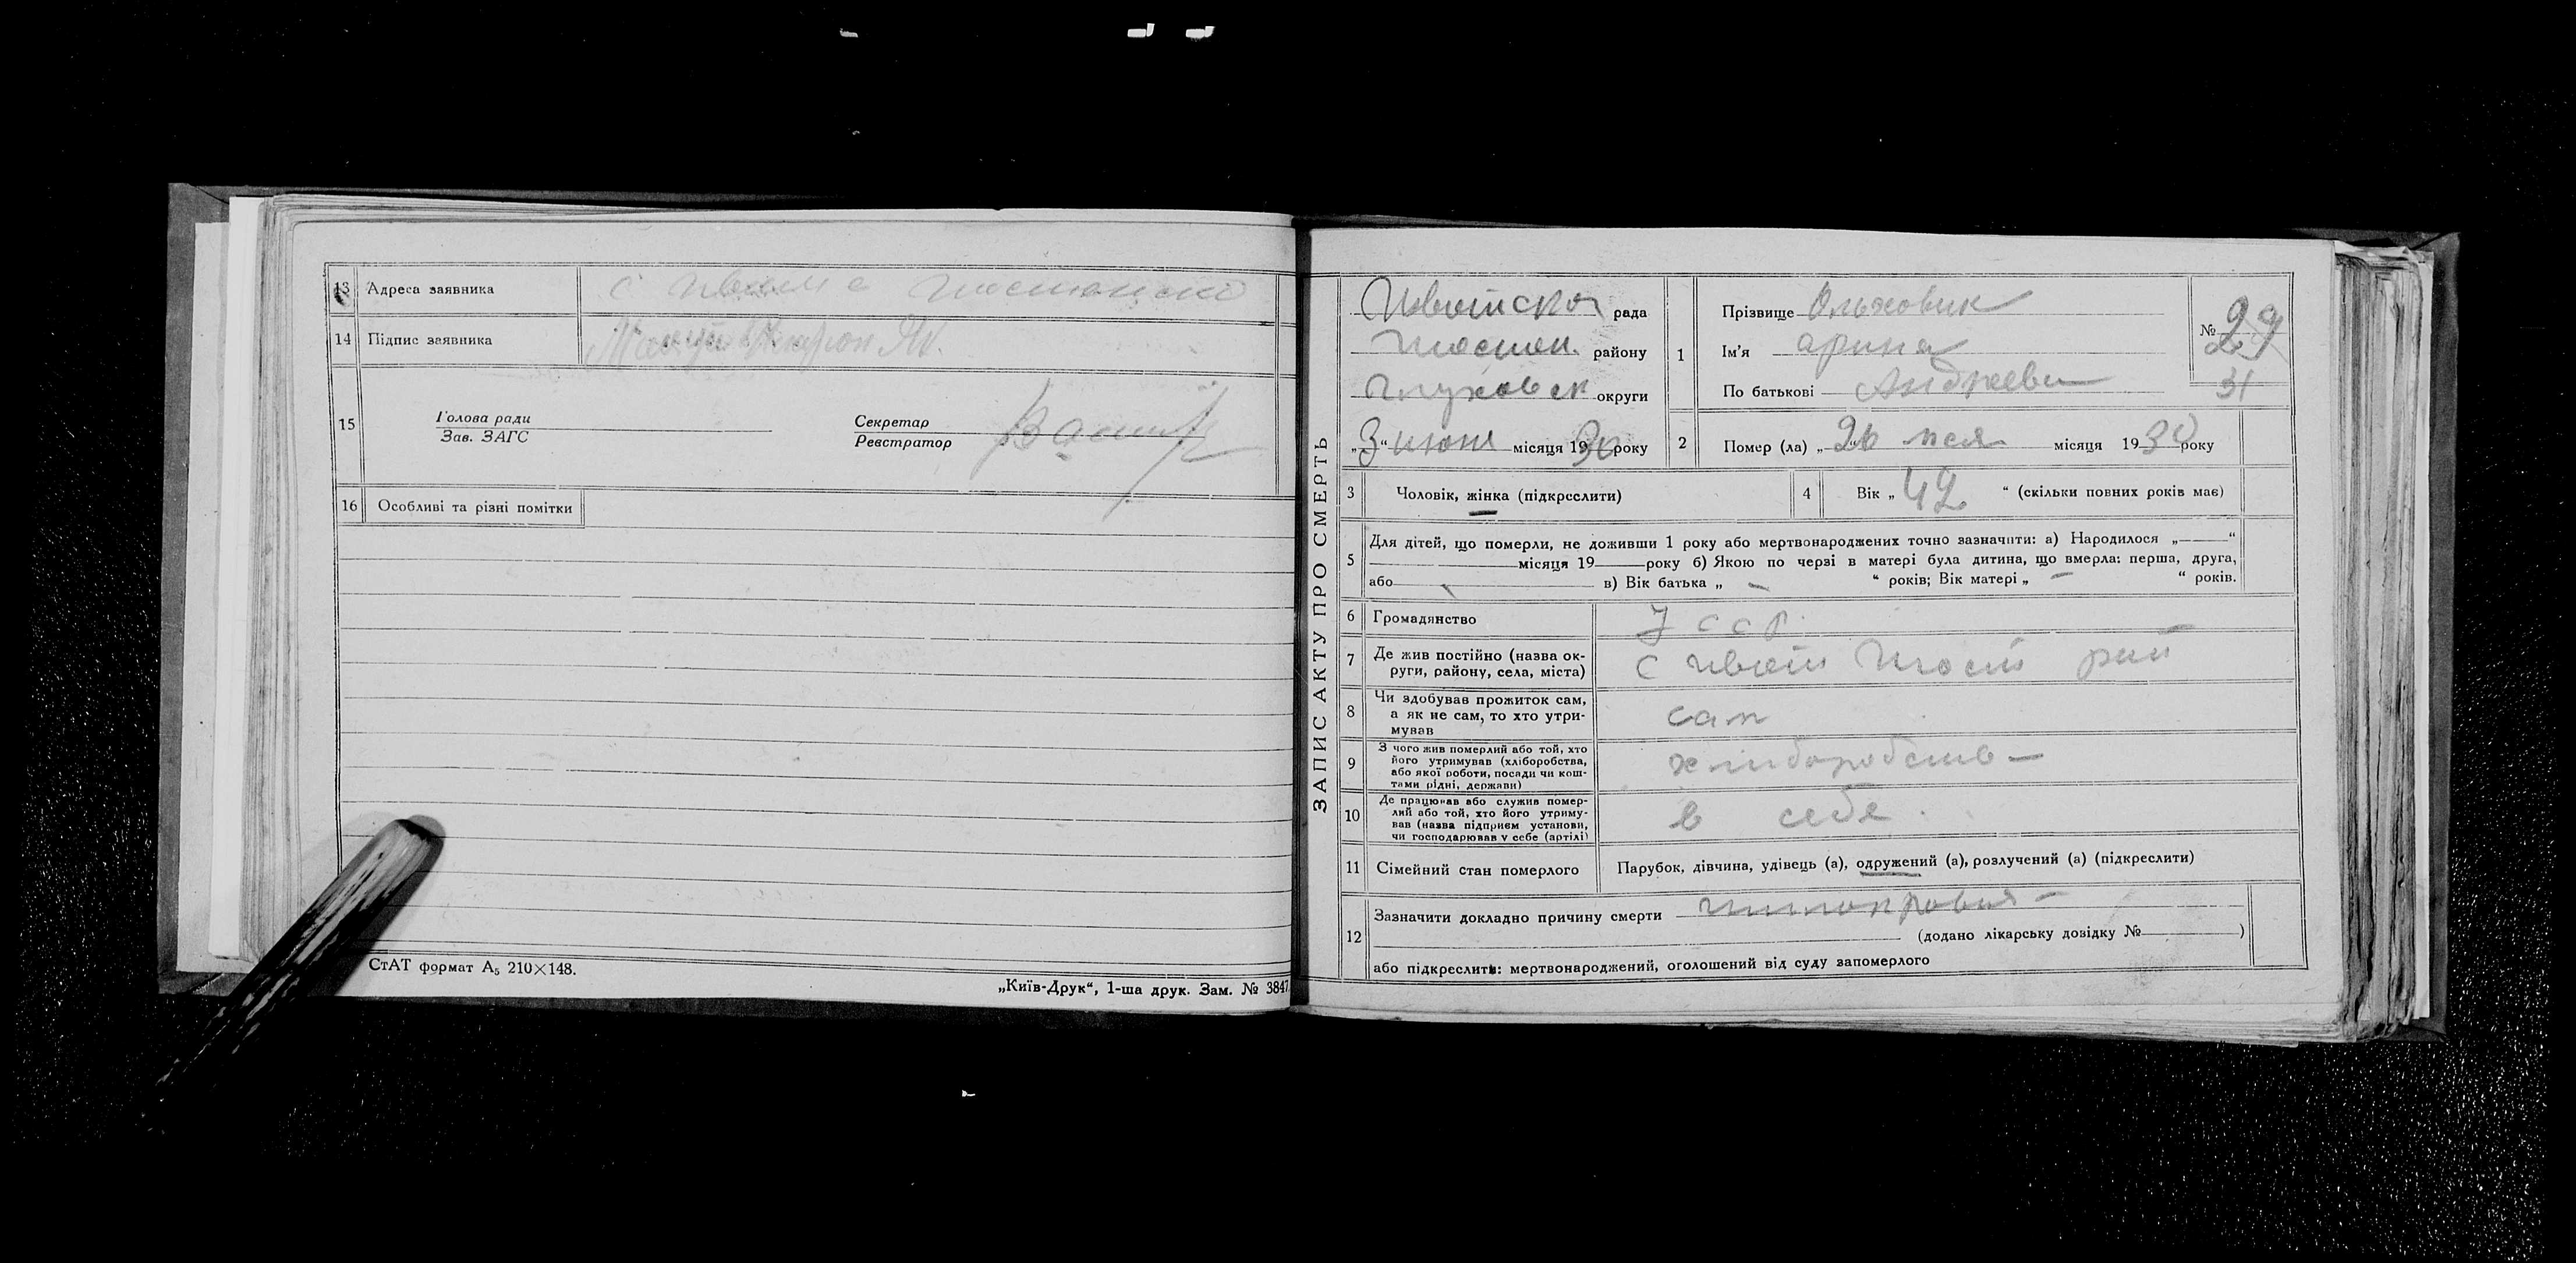 13 Адреса заявника с
14 Підпис заявника
15 Голова ради
Зав. ЗАГС
Секретар
Реєстратор
16 Особливі та різні помітки
СтАТ формат А₅ 210×148.
„Київ-Друк“, 1-ша друк. Зам. № 3847
ЗАПИС АКТУ ПРО СМЕРТЬ
рада
району
Глуховск округи
„3“ июня місяця 1930 року
1 Прізвище Ольховик
Ім'я Арина
По батькові Андреевн
№ 29
31
2 Помер (ла) „26 мая місяця 1930 року
3 Чоловік, жінка (підкреслити)
4 Вік „42“ (скільки повних років має)
5 Для дітей, що померли, не доживши 1 року або мертвонароджених точно зазначити: а) Народилося „ “
місяця 19 року б) Якою по черзі в матері була дитина, що вмерла: перша, друга,
або в) Вік батька „ – “ років; Вік матері „ – “ років.
6 Громадянство УССР
7 Де жив постійно (назва ок-
руги, району, села, міста) с
8 Чи здобував прожиток сам,
а як не сам, то хто утри-
мував сам
9 З чого жив померлий або той, хто
його утримував (хліборобства,
або якої роботи, посади чи кош-
тами рідні, держави) хлиборобств
10 Де працював або служив помер-
лий або той, хто його утриму-
вав (назва підприєм установи,
чи господарював у себе (артілі) в себе
11 Сімейний стан померлого Парубок, дівчина, удівець (а), одружений (а), розлучений (а) (підкреслити)
12 Зазначити докладно причину смерти
(додано лікарську довідку № )
або підкреслить: мертвонароджений, оголошений від суду запомерлого